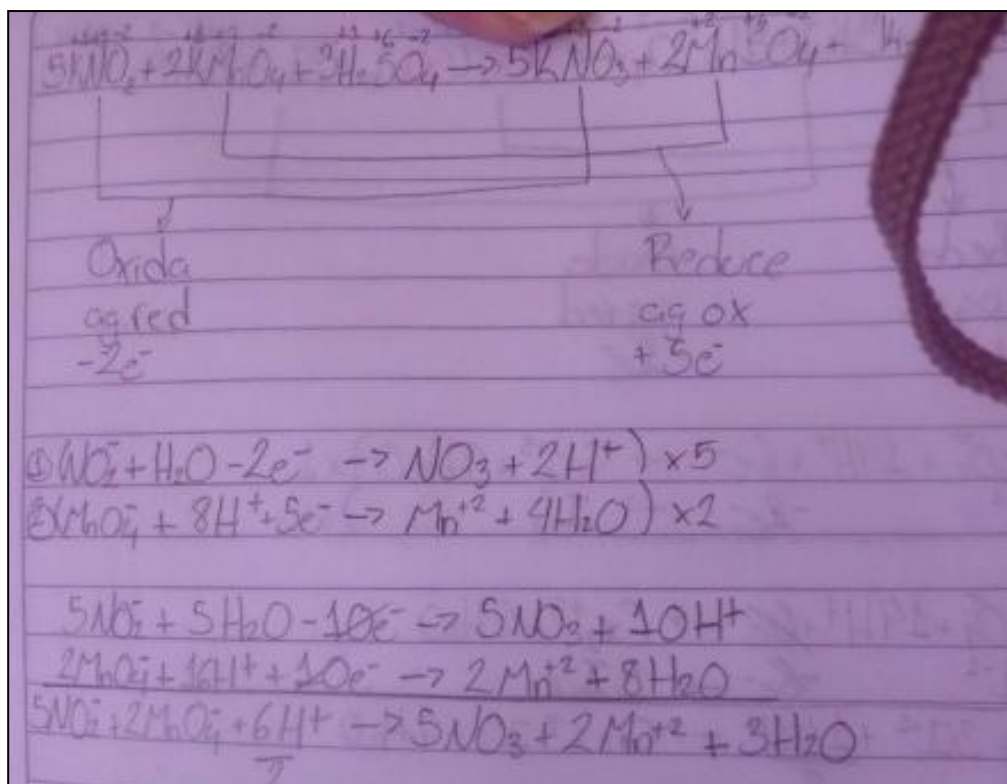 +1 +3 -2 +1 +7 -2 +1 +6 -2 -2 +2 +6 -2
5KNO₂ + 2KMnO₄ + 3H₂SO₄ → 5KNO₃ + 2MnSO₄ +
Oxida Reduce
ag red ag ox
-2e⁻ + 5e⁻
① (NO₂⁻ + H₂O - 2e⁻ → NO₃ + 2H⁺) x5
② (MnO₄⁻ + 8H⁺ + 5e⁻ → Mn⁺² + 4H₂O) x2
5NO₂⁻ + 5H₂O - 10e⁻ → 5NO₂ + 10H⁺
2MnO₄⁻ + 16H⁺ + 10e⁻ → 2Mn⁺² + 8H₂O
5NO₂⁻ + 2MnO₄⁻ + 6H⁺ → 5NO₃ + 2Mn⁺² + 3H₂O
2